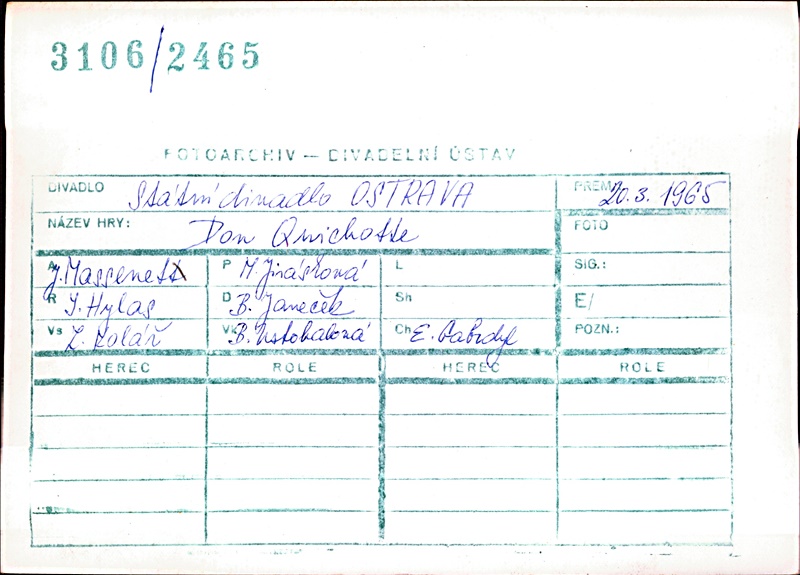 3106/2465
FOTOARCHIV — DIVADELNÍ ÚSTAV
DIVADLO Státní divadlo OSTRAVA PREM. 20.3. 1965
NÁZEV HRY: Don Quichotte FOTO
A J. Massenet P M. Jirásková L SIG.:
R I. Hylas D B. Janeček Sh E/
Vs Z. Kolář Vk B. Ch E. Gabzdyl POZN.:
HEREC ROLE HEREC ROLE